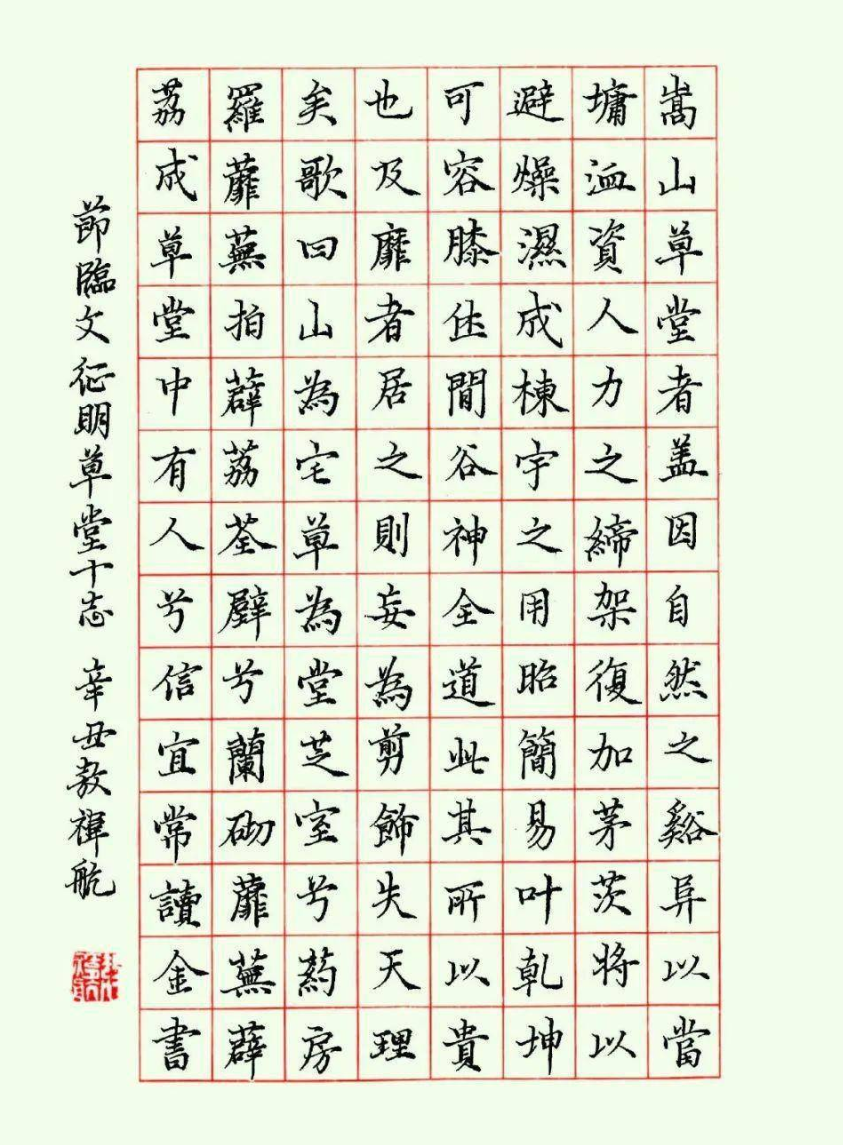 嵩山草堂者盖因自然之谿阜以當
墉洫資人力之締架復加茅茨将以
避燥濕成棟宇之用昭簡易叶乾坤
可容膝休閒谷神全道此其所以貴
也及靡者居之則妄為剪飾失天理
矣歌曰山為宅草為堂芝室兮葯房
羅蘼蕪拍薜荔荃壁兮蘭砌蘼蕪薜
荔成草堂中有人兮信宜常讀金書
節臨文征明草堂十志 辛丑敖禕航